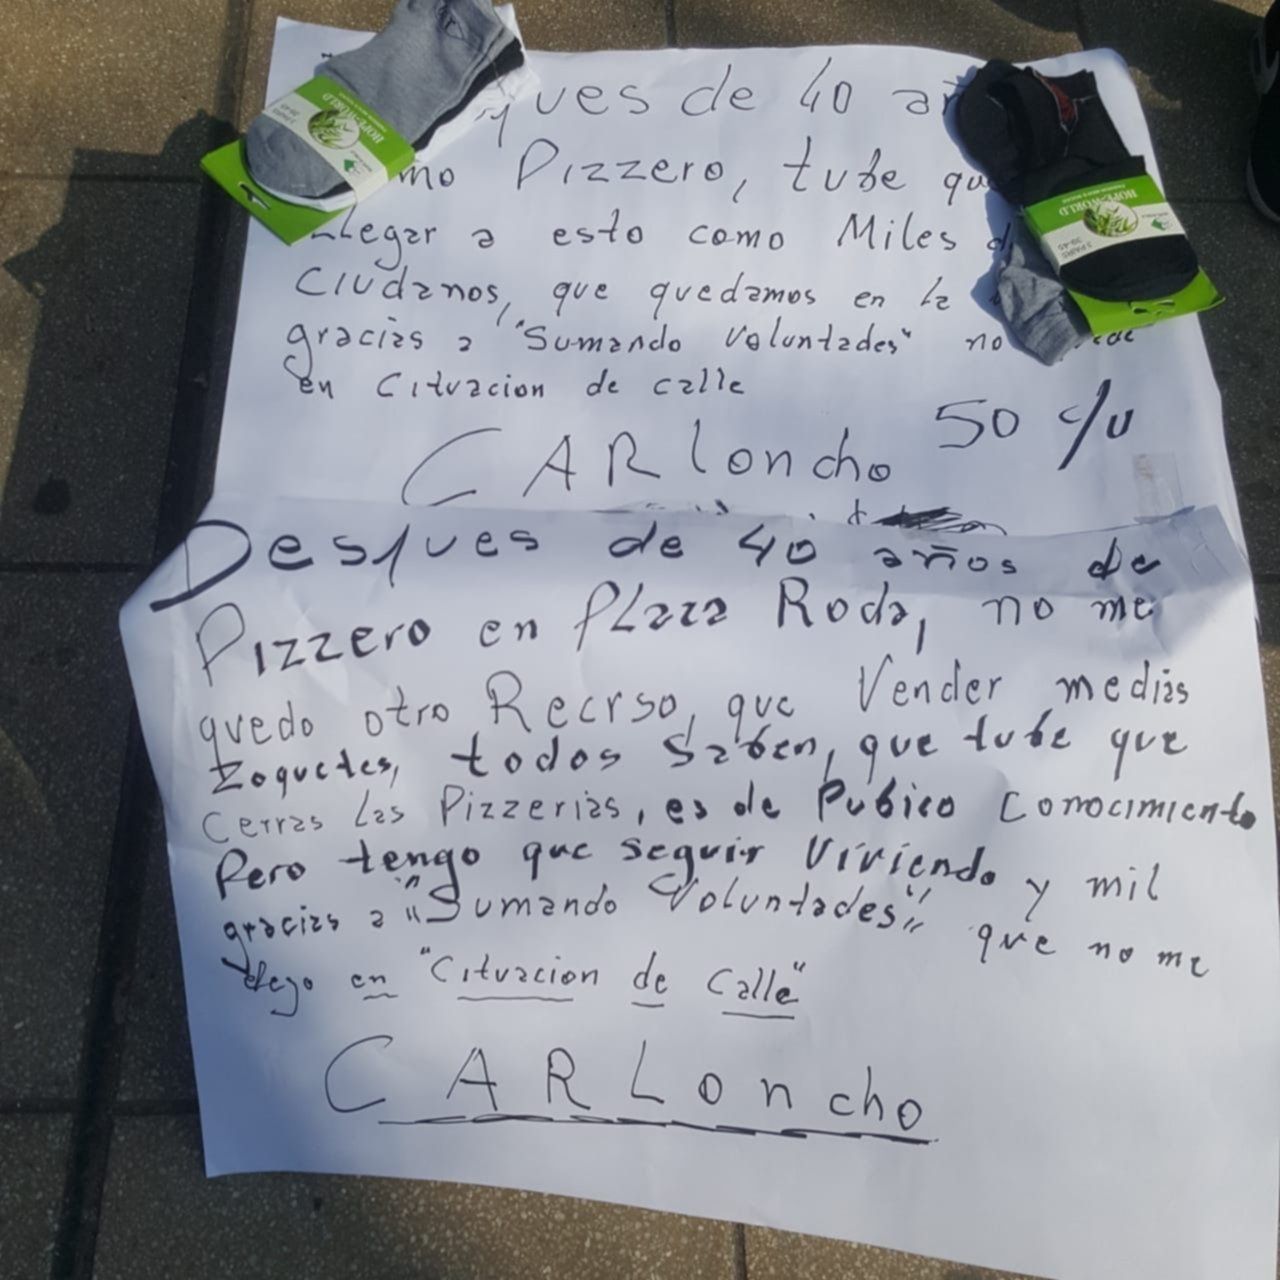 ques de 40 añ
mo Pizzero, tube qu
Llegar a esto como Miles d
Ciudanos, que quedamos en la
gracias a "Sumando Voluntades" no
en Cituacion de calle
CARloncho 50 c/u
HOPEWORLD
5 PAIRS
39-45
HOPEWORLD
5 PAIRS
39-45
Despues de 40 años de
Pizzero en Plaza Roda, no me
quedo otro Recrso, que Vender medias
Zoquetes, todos Saben, que tube que
Cerras las Pizzerias, es de Pubico Conocimiento
Pero tengo que seguir Viviendo y mil
gracias a "Sumando Voluntades" que no me
dejo en "Cituacion de Calle"
CARLoncho